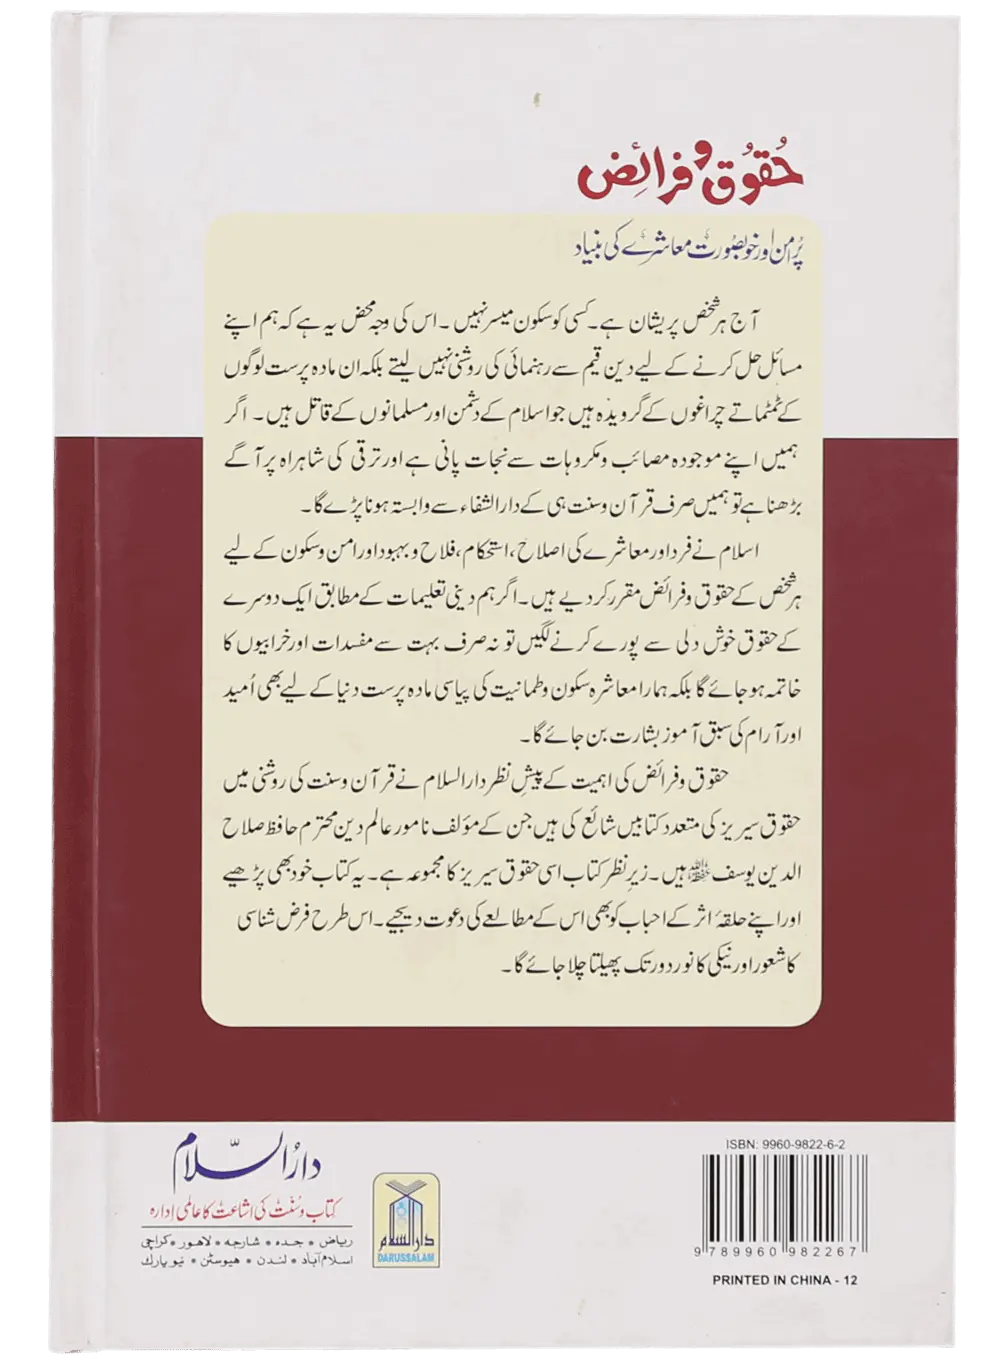 حُقُوُق و فرائِض
پُر امن اور خوبصورت معاشرے کی بنیاد
آج ہر شخص پریشان ہے۔ کسی کو سکون میسر نہیں۔ اس کی وجہ محض یہ ہے کہ ہم اپنے
مسائل حل کرنے کے لیے دین قیم سے رہنمائی کی روشنی نہیں لیتے بلکہ ان مادہ پرست لوگوں
کے ٹمٹماتے چراغوں کے گرویدہ ہیں جو اسلام کے دشمن اور مسلمانوں کے قاتل ہیں۔ اگر
ہمیں اپنے موجودہ مصائب و مکروہات سے نجات پانی ہے اور ترقی کی شاہراہ پر آگے
بڑھنا ہے تو ہمیں صرف قرآن و سنت ہی کے دارالشفاء سے وابستہ ہونا پڑے گا۔
اسلام نے فرد اور معاشرے کی اصلاح، استحکام، فلاح و بہبود اور امن و سکون کے لیے
ہر شخص کے حقوق و فرائض مقرر کر دیے ہیں۔ اگر ہم دینی تعلیمات کے مطابق ایک دوسرے
کے حقوق خوش دلی سے پورے کرنے لگیں تو نہ صرف بہت سے مفسدات اور خرابیوں کا
خاتمہ ہو جائے گا بلکہ ہمارا معاشرہ سکون و طمانیت کی پیاسی مادہ پرست دنیا کے لیے بھی اُمید
اور آرام کی سبق آموز بشارت بن جائے گا۔
حقوق و فرائض کی اہمیت کے پیشِ نظر دارالسلام نے قرآن و سنت کی روشنی میں
حقوق سیریز کی متعدد کتابیں شائع کی ہیں جن کے مؤلف نامور عالم دین محترم حافظ صلاح
الدین یوسف ﷾ ہیں۔ زیرِ نظر کتاب اسی حقوق سیریز کا مجموعہ ہے۔ یہ کتاب خود بھی پڑھیے
اور اپنے حلقۂ اثر کے احباب کو بھی اس کے مطالعے کی دعوت دیجیے۔ اس طرح فرض شناسی
کا شعور اور نیکی کا نور دور تک پھیلتا چلا جائے گا۔
دارُالسّلام
کتاب و سنت کی اشاعت کا عالمی ادارہ
ریاض • جدہ • شارجہ • لاہور • کراچی
اسلام آباد • لندن • ھیوسٹن • نیو یارک
دارالسلام
DARUSSALAM
ISBN: 9960-9822-6-2
9 789960 982267
PRINTED IN CHINA - 12